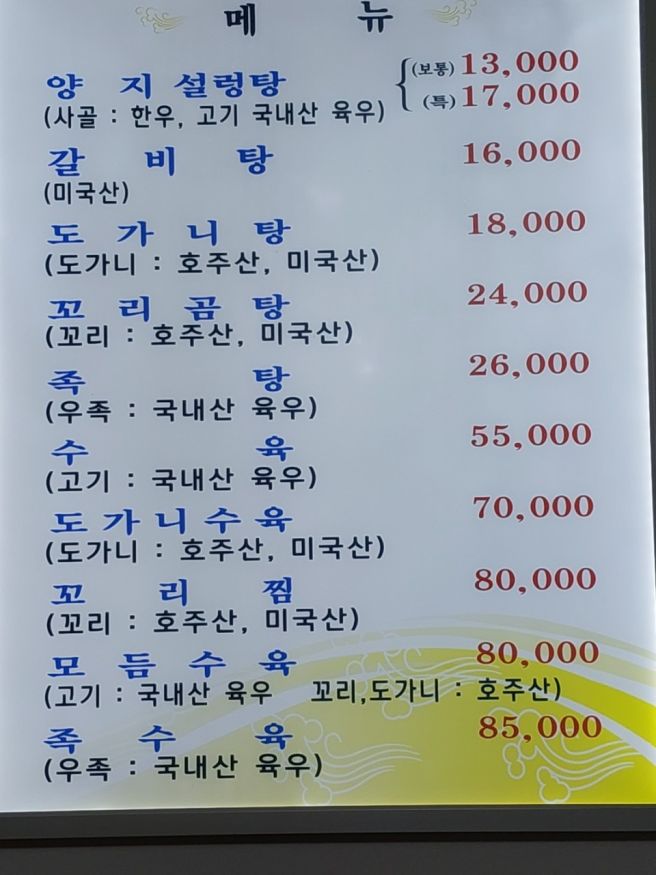 메 뉴
양 지 설렁탕 (보통) 13,000
(특) 17,000
(사골 : 한우, 고기 국내산 육우)
갈 비 탕 16,000
(미국산)
도 가 니 탕 18,000
(도가니 : 호주산, 미국산)
꼬 리 곰 탕 24,000
(꼬리 : 호주산, 미국산)
족 탕 26,000
(우족 : 국내산 육우)
수 육 55,000
(고기 : 국내산 육우)
도 가 니 수 육 70,000
(도가니 : 호주산, 미국산)
꼬 리 찜 80,000
(꼬리 : 호주산, 미국산)
모 듬 수 육 80,000
(고기 : 국내산 육우 꼬리,도가니 : 호주산)
족 수 육 85,000
(우족 : 국내산 육우)